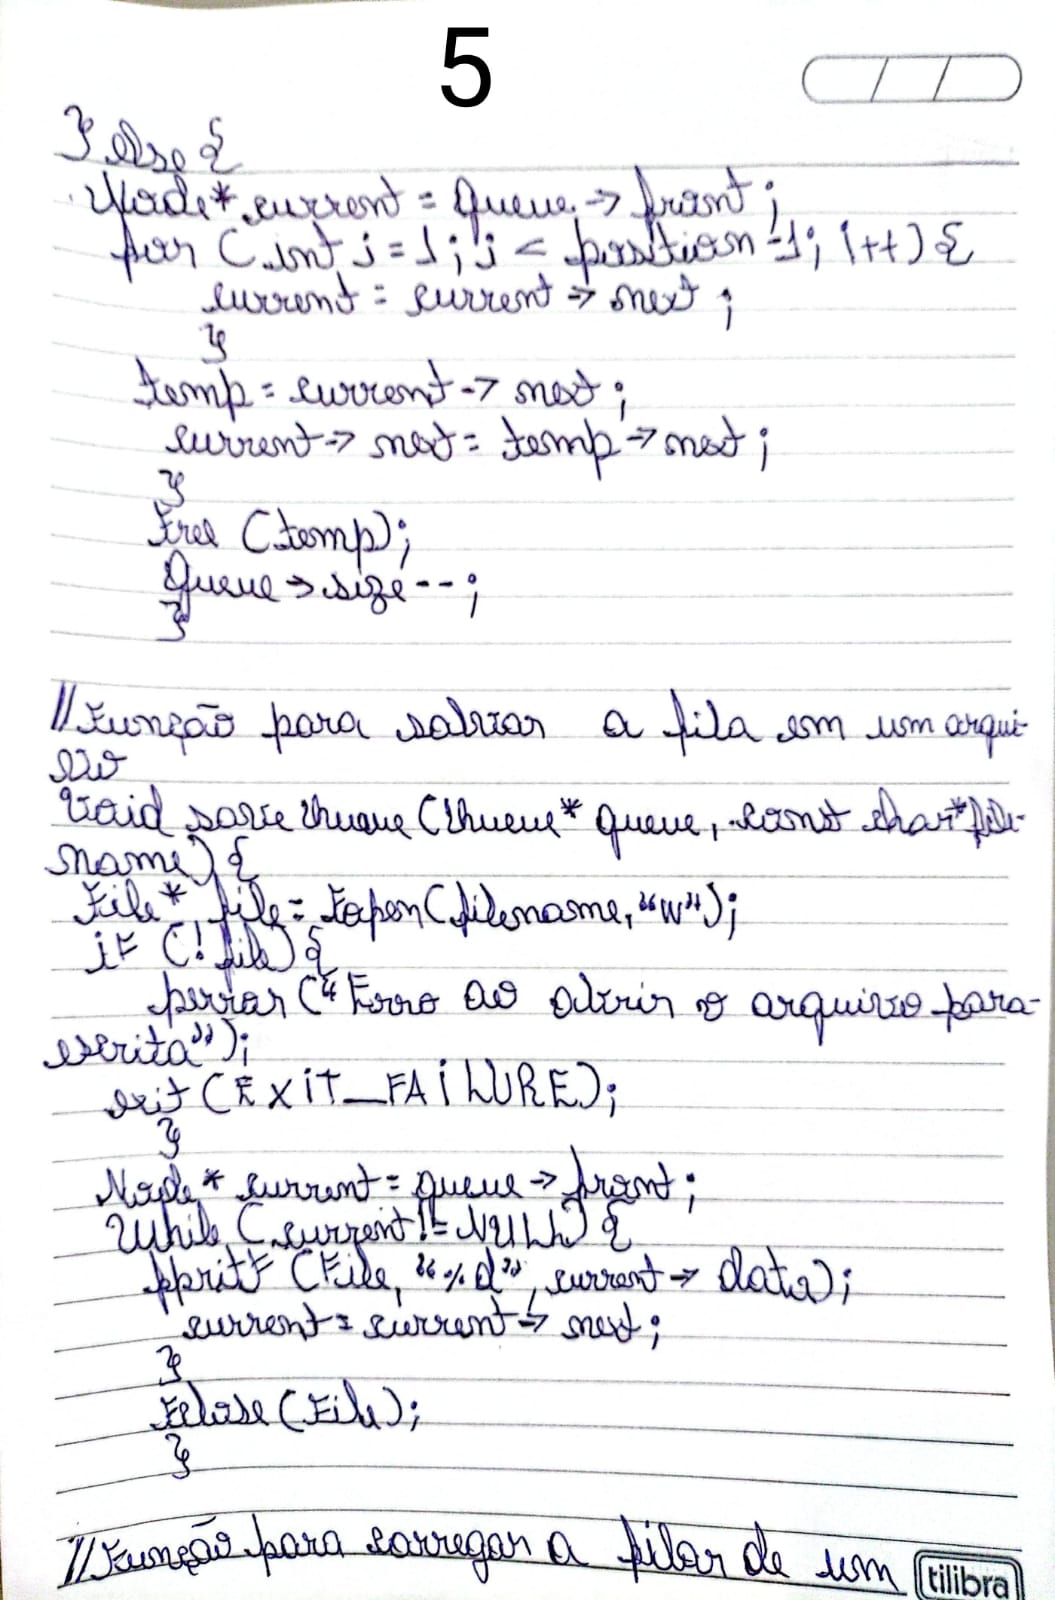 5
} else {
Node* current = Queue -> front;
for (int i = 1; i < position -1; i++) {
current = current -> next;
}
temp = current -> next;
current -> next = temp -> next;
}
Free (temp);
Queue -> size --;
}
// Função para salvar a fila em um arqui-
vo
Void save Queue (Queue* queue, const char* file-
name) {
File* file = Fopen (filename, "w");
iF (! file) {
perror ("Erro ao abrir o arquivo para-
escrita");
exit (EXiT_FAiLURE);
}
Node* current = queue -> front;
While (current != NULL) {
fpritF (File, "%d", current -> data);
current = current -> next;
}
Fclose (File);
}
// Função para carregar a filar de um
tilibra